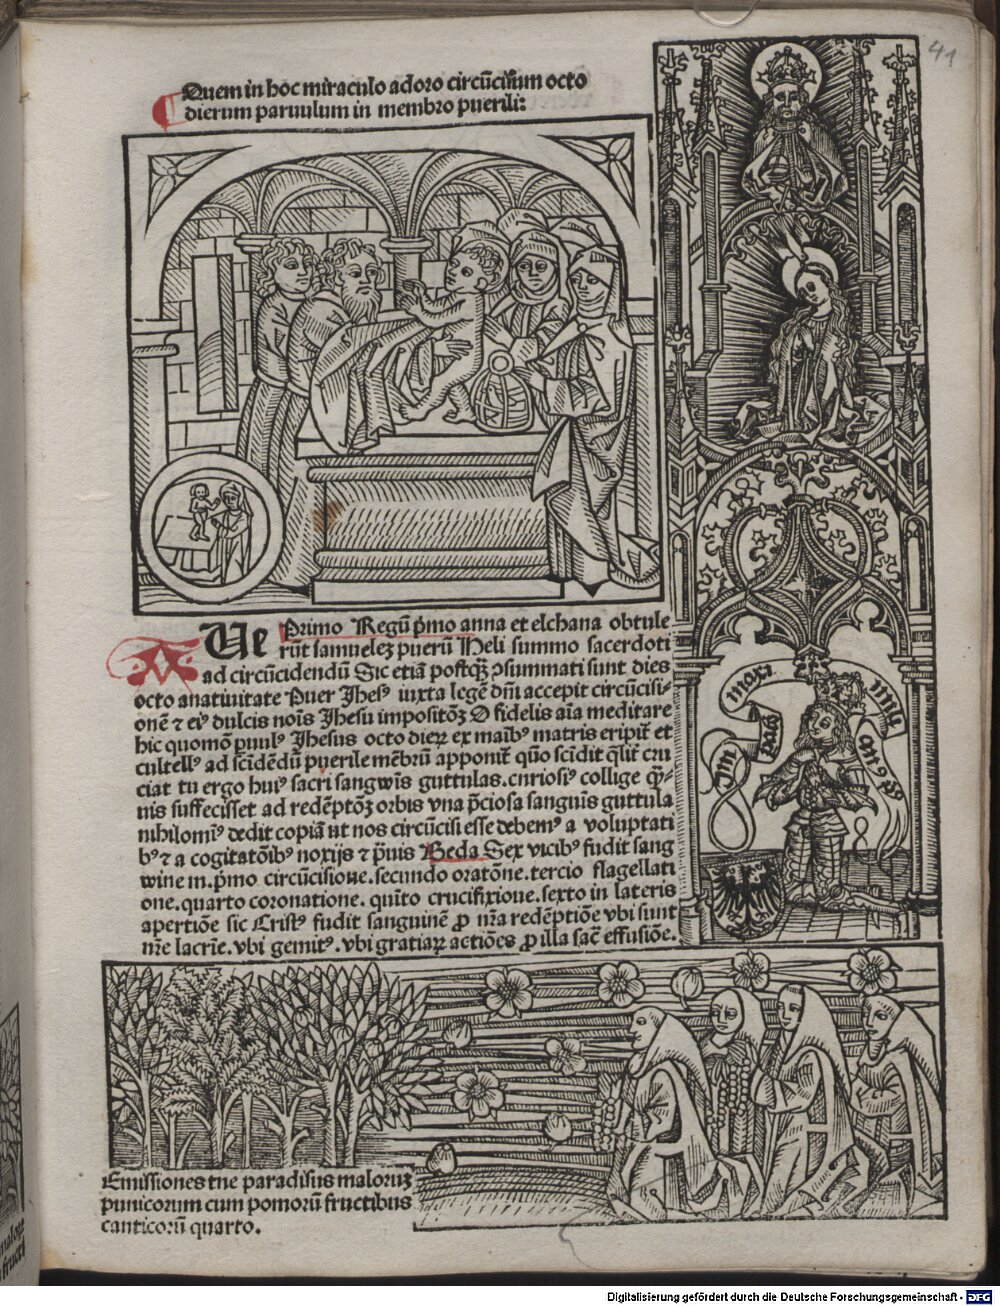 41
Quem in hoc miraculo adoro circūcisum octo
dierum paruulum in membro puerili:
AUe Primo Regū p̄mo anna et elchana obtule
rūt samuelez puerū Heli summo sacerdoti
ad circūcidendū Sic etiā postq̄ꝫ ꝯsummati sunt dies
octo anatiuitate Puer Jhesꝰ iuxta legē dn̄i accepit circūcisi⸗
onē ⁊ eiꝰ dulcis nois̄ Jhesu impositōꝫ O fidelis aīa meditare
hic quomō puulꝰ Jhesus octo dieꝝ ex maibꝰ matris eripit̄ et
cultellꝰ ad scīdēdū puerile mēbrū apponit̄ quō scidit q̄lit̄ cru
ciat tu ergo huiꝰ sacri sangwīs guttulas. curiosiꝰ collige qͣꝫ⸗
uis suffecisset ad redēptōꝫ orbis vna p̄ciosa sanguīs guttula
nihilomīꝰ dedit copiā ut nos circūcisi esse debemꝰ a voluptati
bꝰ ⁊ a cogitatōibꝰ noxijs ⁊ p̄uis Beda Sex vicibꝰ fudit sang
winem. p̄mo circūcisione. secundo oratōne. tercio flagellati
one. quarto coronatione. quīto crucifixione. sexto in lateris
apertiōe sic Cristꝰ fudit sanguinē ꝓ nr̄a redēptiōe vbi sunt
nr̄e lacrīe. vbi gemitꝰ. vbi gratiaꝝ actiōes ꝓ illa sac̄ effusiōe.
maxi
mili
Im
pato
Emissiones tue paradisus maloruꝫ
punicorum cum pomorū fructibus
canticorū quarto.
Digitalisierung gefördert durch die Deutsche Forschungsgemeinschaft - DFG